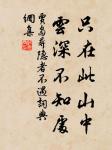 只在此山中
雲深不知處
賈島尋隱者不遇詞典
網集